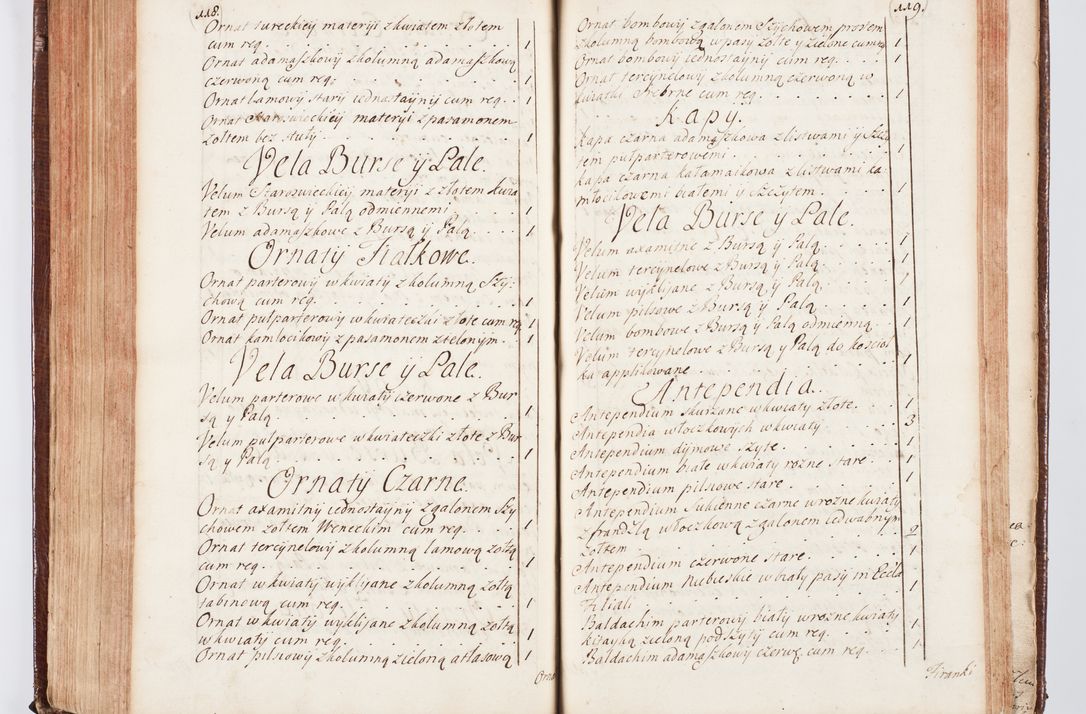 118.
Ornat tureckiey materyi z kwiatem złotem
cum req. 1
Ornat adamaszkowy z kolumną adamaszkową
czerwoną cum req: 1
Ornat lamowy stary iednostaÿnÿ cum req. 1
Ornat Staroswieckieÿ materyi z pasamonem
żołtem bez stuły 1
Vela Burse ÿ Pale.
Velum Staroswieckieÿ materyi z złotem kwia
tem z Bursą ÿ Palą odmiennemi 1
Velum adamaszkowe z Bursą ÿ Palą. 1
Ornatÿ Fiałkowe.
Ornat parterowÿ w kwiatÿ z kolumną Szÿ:
chową cum req. 1
Ornat pułparterowÿ w kwiateczki złote cum req 1
Ornat kamlocikowÿ z pasamonem zielonym. 1
Vela Burse ÿ Pale.
Velum parterowe w kwiatÿ czerwone z Bur
są ÿ Palą. 1
Velum pułparterowe w kwiateczki złote z Bur
są ÿ Palą 1
Ornatÿ Czarne.
Ornat axamitnÿ iednostaÿnÿ z galonem Szÿ
chowem żołtem Weneckim cum req. 1
Ornat tercÿnelowÿ z kolumną lamową żołtą
cum req. 1
Ornat w kwiatÿ wÿklijane z kolumną żołtą
tabinową cum req. 1
Ornat w kwiatÿ wÿklijane z kolumną żołtą
w kwiatÿ cum req. 1
Ornat pilsiowÿ z kolumną zieloną atłasową 1
Orna
119.
Ornat bombowÿ z galonem Szÿchowem prostem
z kolumną bombową w pasÿ żołte ÿ zielone cum req 1
Ornat bombowÿ iednostaÿnÿ cum req. 1
Ornat tercÿnelowÿ z kolumną czerwoną w
kwiatki srebrne cum req. 1
Kapÿ.
Kapa czarna adamaszkowa z listwami ÿ Szczÿ
tem pułparterowemi. 1
Kapa czarna kałamaikowa z listwami ka:
młocikowemi białemi ÿ szczytem. 1
Vela Burse ÿ Pale.
Velum axamitne z Bursą ÿ Palą. 1
Velum tercÿnelowe z Bursą ÿ Palą. 1
Velum wÿklijane z Bursą ÿ Palą. 1
Velum pilsiowe z Bursą ÿ Palą 1
Velum bombowe z Bursą ÿ Palą odmienną 1
Velum tercÿnelowe z Bursą ÿ Palą do koscioł
ka applikowane. 1
Antependia.
Antependium skurzane w kwiaty złote. 1
Antependia włoczkowych w kwiatÿ 3
Antependium dÿmowe szÿte. 1
Antependium białe w kwiaty rożne stare. 1
Antependium pilsiowe stare. 1
Antependium Sukienne czarne w rożne kwiatÿ
z frandzlą włoczkową z galonem iedwabnÿm
żołtem 2
Antependium czerwone stare. 1
Antependium Niebieskie w białÿ pasÿ in Eccla
Filiali 1
Baldachim parterowy białÿ w rożne kwiatÿ
kitaÿką zieloną podszÿtÿ cum req. 1
Baldachim adamaszkowÿ czerwo. cum req. 1
Firanki